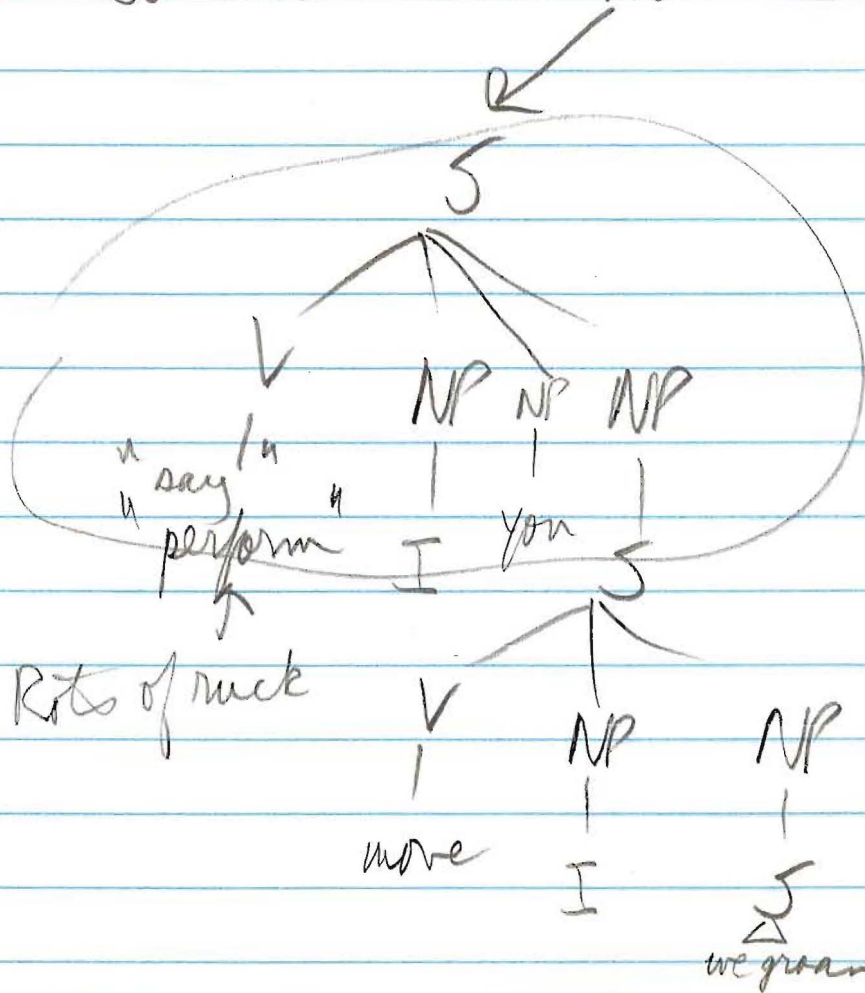 S
V NP NP NP
"say"
"perform" I you S
Rots of ruck
V NP NP
move I S
we groan